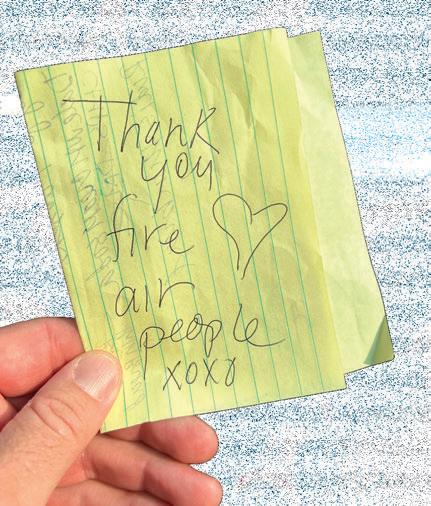 Thank
you
fire
air
people
xoxo